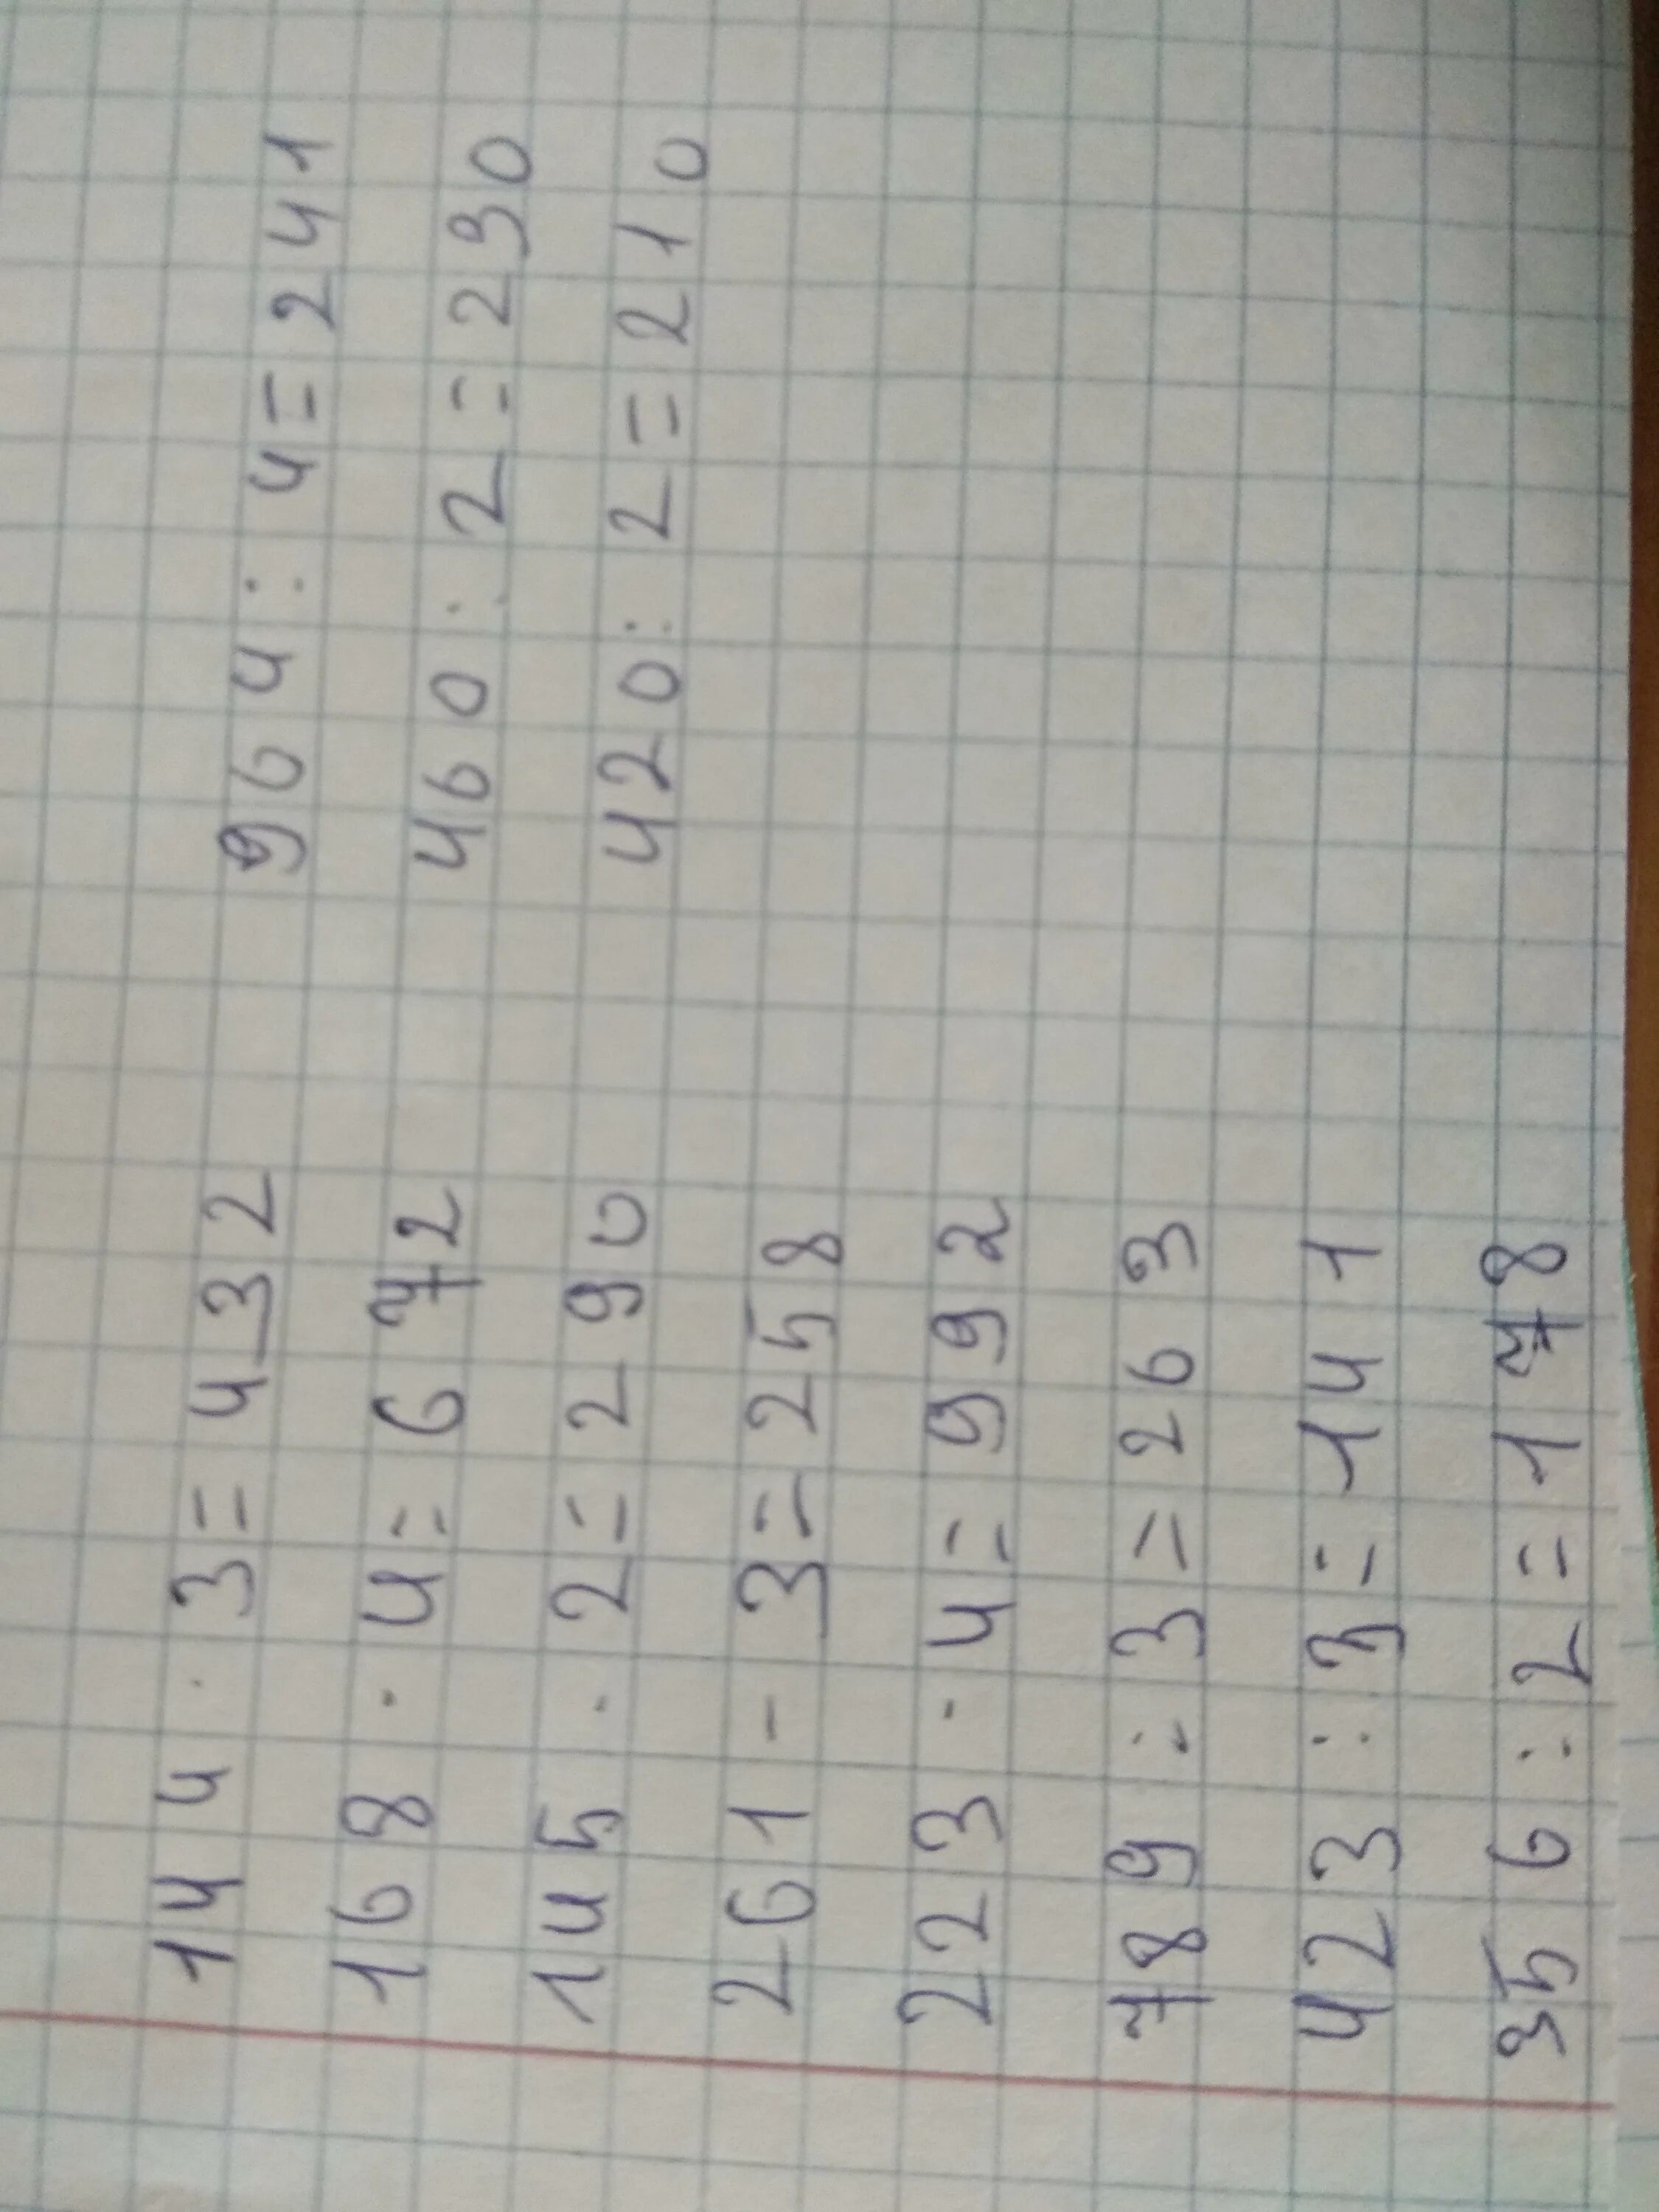 144 · 3 = 432
168 · 4 = 672
145 · 2 = 290
261 - 3 = 258
223 · 4 = 992
789 : 3 = 263
423 : 3 = 141
356 : 2 = 178
964 : 4 = 241
460 : 2 = 230
420 : 2 = 210